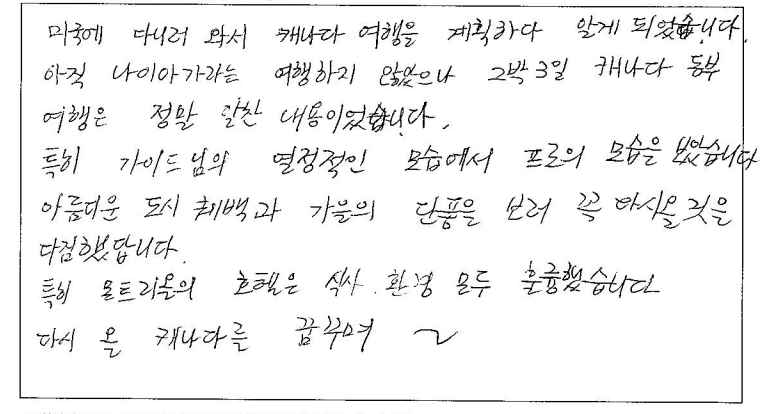 미국에 다니러 와서 캐나다 여행을 계획하다 알게 되었습니다.
아직 나이아가라는 여행하지 않았으나 2박 3일 캐나다 동부
여행은 정말 알찬 내용이었습니다.
특히 가이드님의 열정적인 모습에서 프로의 모습을 보았습니다
아름다운 도시 퀘백과 가을의 단풍을 보러 꼭 다시올 것을
다짐했답니다.
특히 몬트리올의 호텔은 식사. 환경 모두 훌륭했습니다
다시 올 캐나다를 꿈꾸며 ~